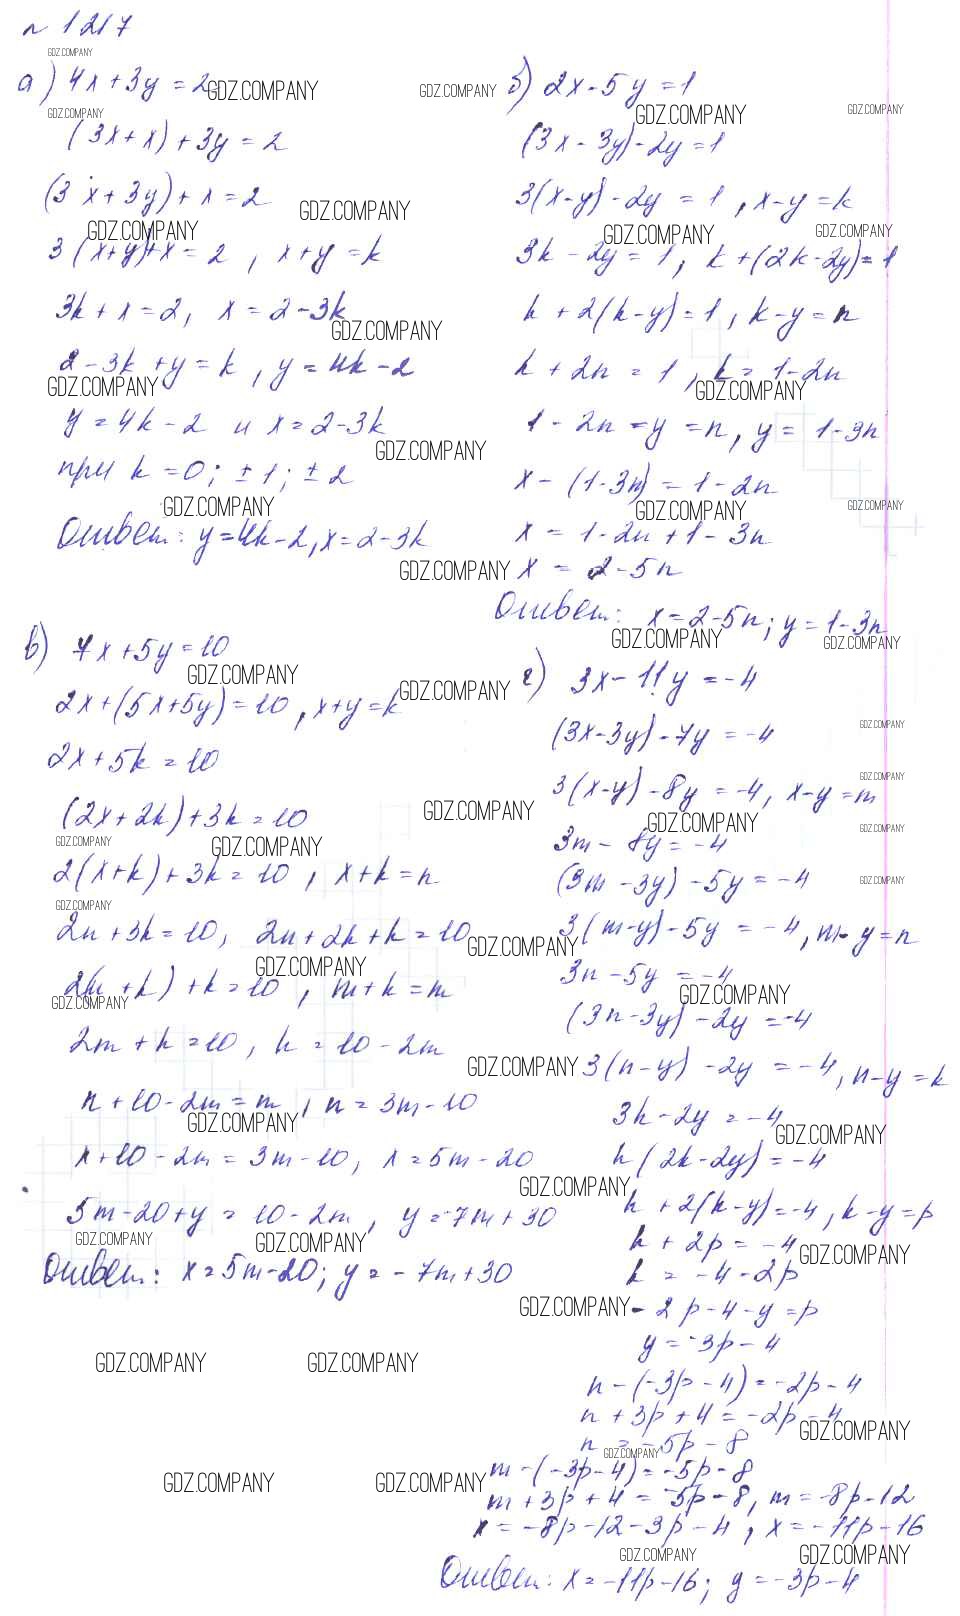 № 1217
а) 4x + 3y = 2
(3x + x) + 3y = 2
(3x + 3y) + x = 2
3(x + y) + x = 2, x + y = k
3k + x = 2, x = 2 - 3k
2 - 3k + y = k, y = 4k - 2
y = 4k - 2 и x = 2 - 3k
при k = 0; ± 1; ± 2
Ответ: y = 4k - 2, x = 2 - 3k
б) 2x - 5y = 1
(3x - 3y) - 2y = 1
3(x - y) - 2y = 1, x - y = k
3k - 2y = 1; k + (2k - 2y) = 1
k + 2(k - y) = 1, k - y = n
k + 2n = 1, k = 1 - 2n
1 - 2n = y = n, y = 1 - 3n
x - (1 - 3n) = 1 - 2n
x = 1 - 2n + 1 - 3n
x = 2 - 5n
Ответ: x = 2 - 5n; y = 1 - 3n
в) 7x + 5y = 10
2x + (5x + 5y) = 10, x + y = k
2x + 5k = 10
(2x + 2k) + 3k = 10
2(x + k) + 3k = 10, x + k = n
2n + 3k = 10, 2n + 2k + k = 10
2(n + k) + k = 10, m + k = m
2m + k = 10, k = 10 - 2m
n + 10 - 2m = m, n = 3m - 10
x + 10 - 2m = 3m - 10, x = 5m - 20
5m - 20 + y = 10 - 2m, y = -7m + 30
Ответ: x = 5m - 20; y = -7m + 30
г) 3x - 11y = -4
(3x - 3y) - 7y = -4
3(x - y) - 8y = -4, x - y = m
3m - 8y = -4
(3m - 3y) - 5y = -4
3(m - y) - 5y = -4, m - y = n
3n - 5y = -4
(3n - 3y) - 2y = -4
3(n - y) - 2y = -4, n - y = k
3k - 2y = -4
k(2k - 2y) = -4
k + 2(k - y) = -4, k - y = p
k + 2p = -4
k = -4 - 2p
- 2p - 4 - y = p
y = -3p - 4
n - (-3p - 4) = -2p - 4
n + 3p + 4 = -2p - 4
n = -5p - 8
m - (-3p - 4) = -5p - 8
m + 3p + 4 = -5p - 8, m = -8p - 12
x = -8p - 12 - 3p - 4, x = -11p - 16
Ответ: x = -11p - 16; y = -3p - 4
GDZ.COMPANY